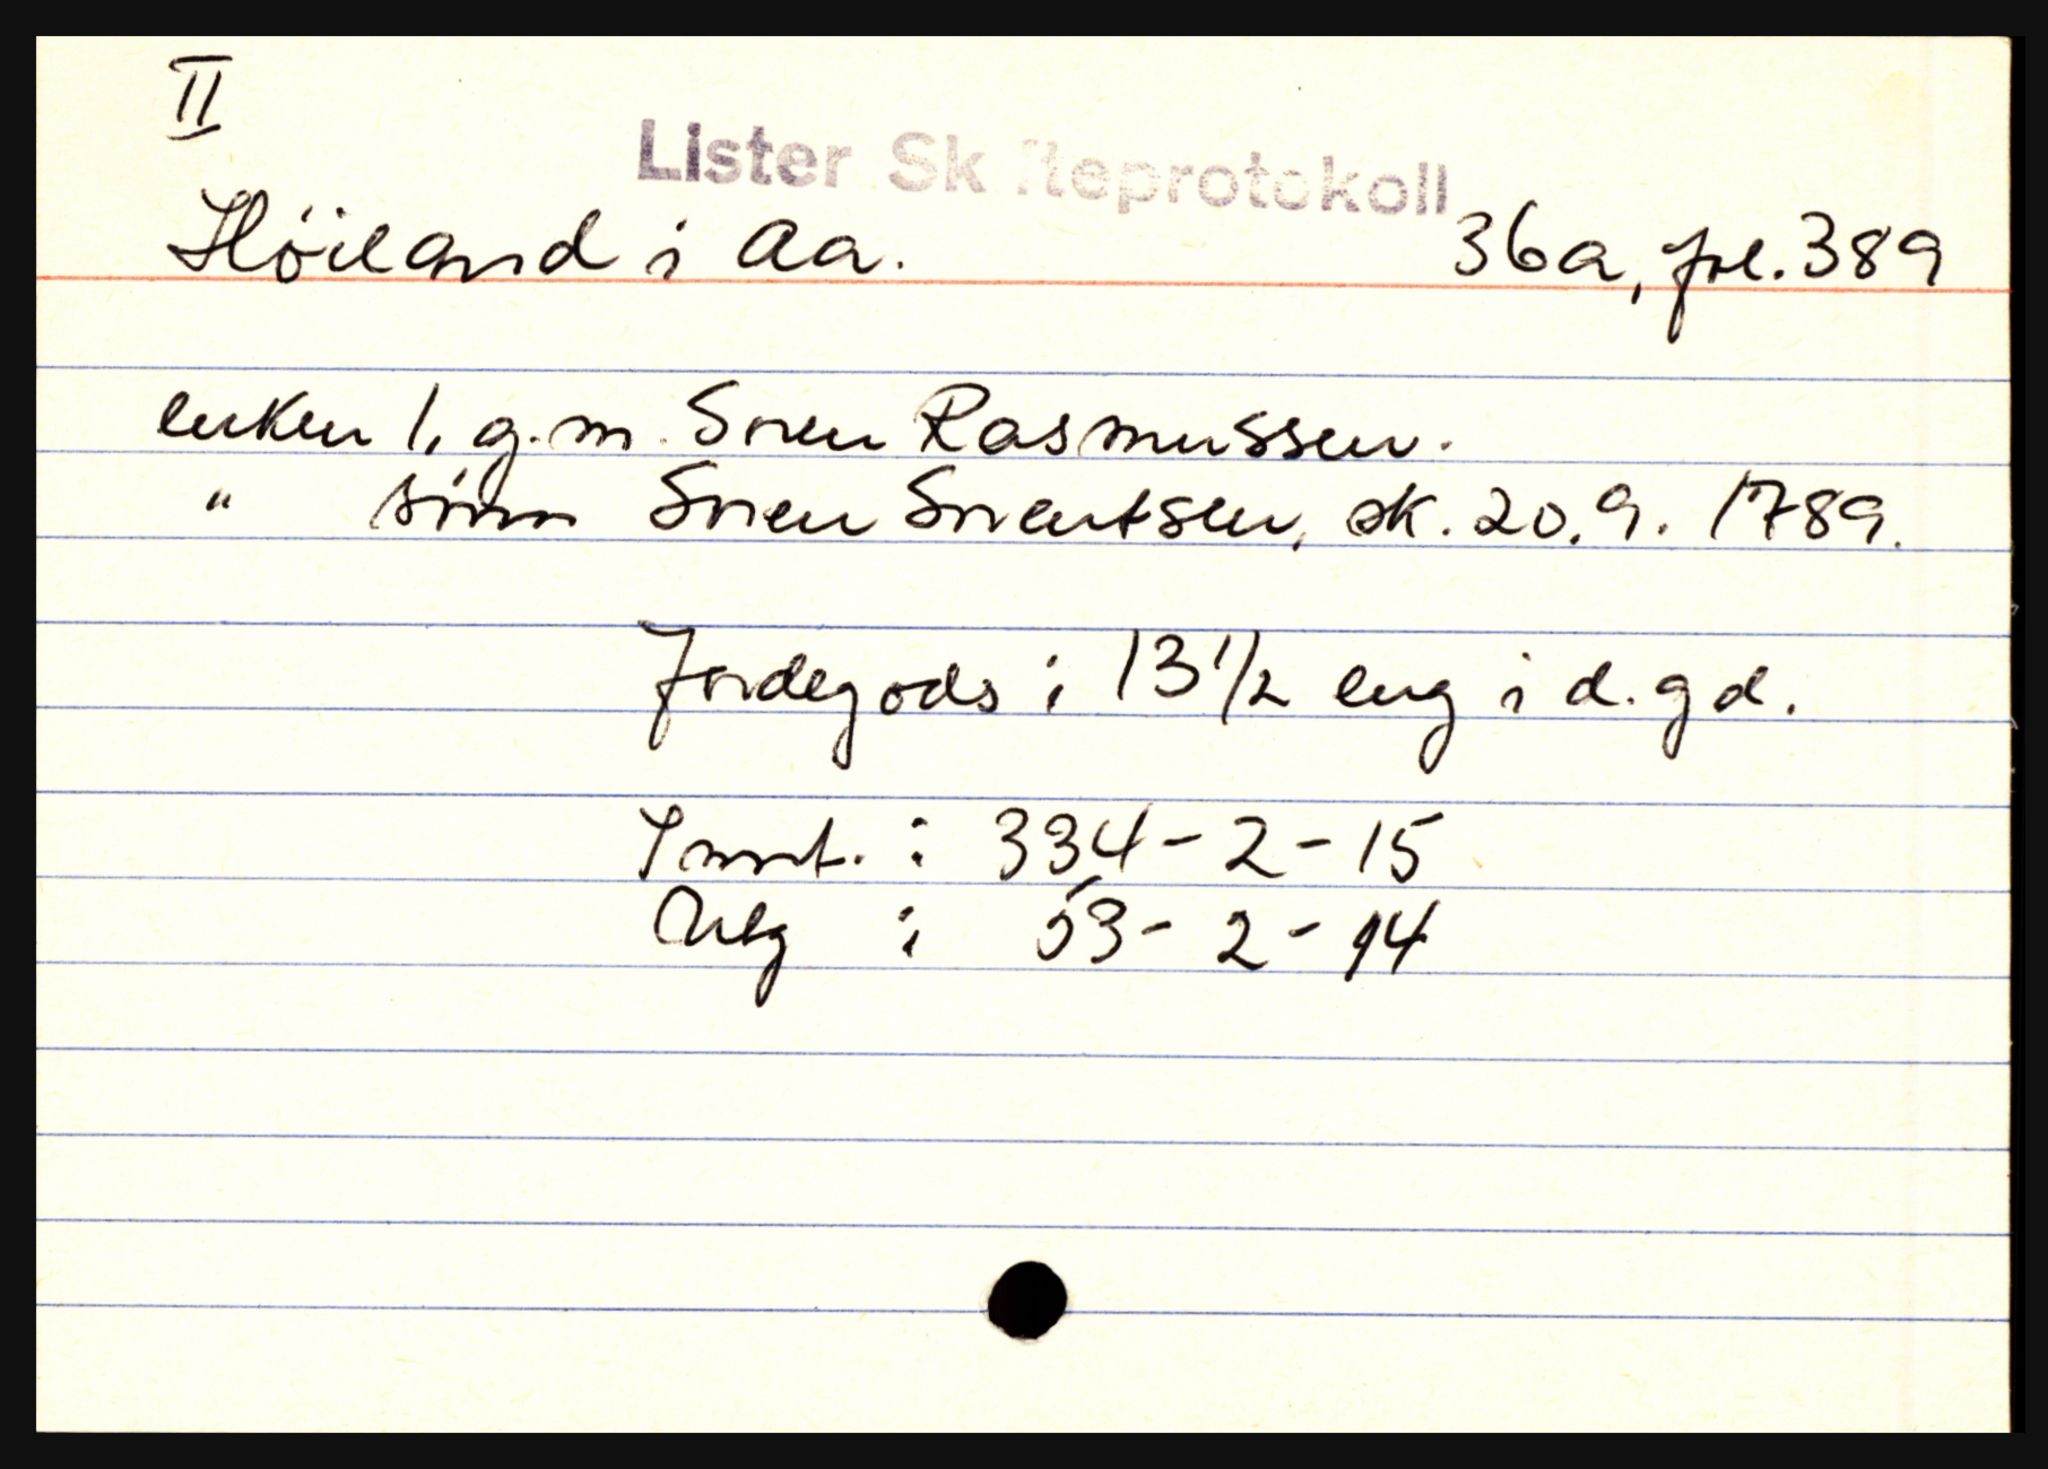 II
Lister Skifteprotokoll
Høiland i Aa. 36a, fol. 389
enken 1. g.m. Sven Rasmussen.
" sønn Sven Sventsen, sk. 20.9. 1789.
Jordegods i 13 1/2 eng i d. gd.
Innt. : 334-2-15
Utg : 53-2-14